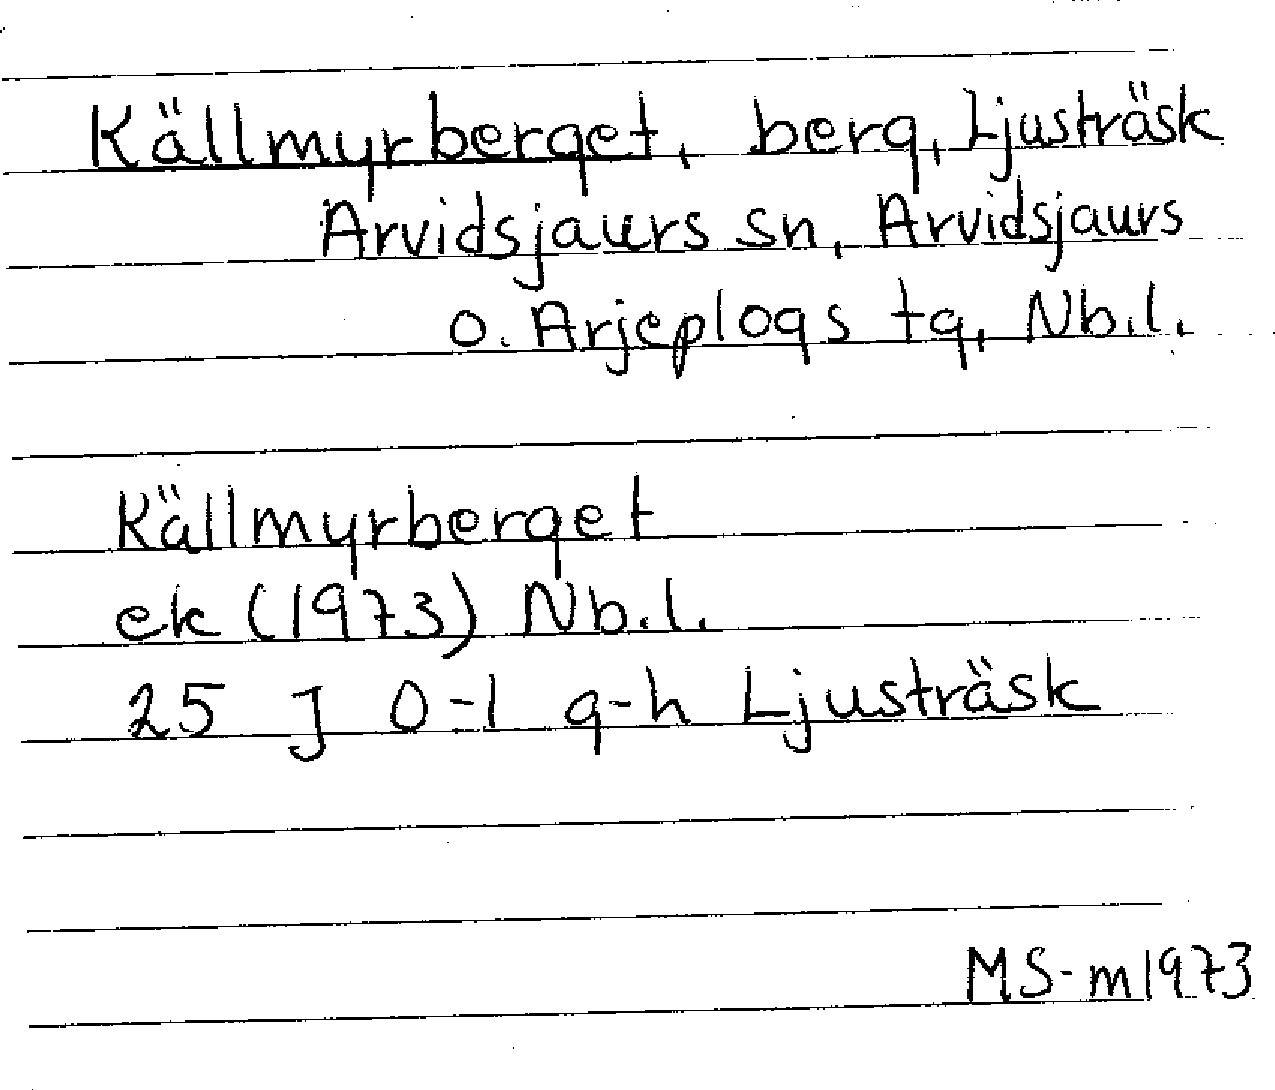 Källmyrberget, berg, Ljusträsk
Arvidsjaurs sn, Arvidsjaurs
o. Arjeplogs tg, Nb.l.
Källmyrberget
ek (1973) Nb.l.
25 J 0-1 g-h Ljusträsk
MS-m1973